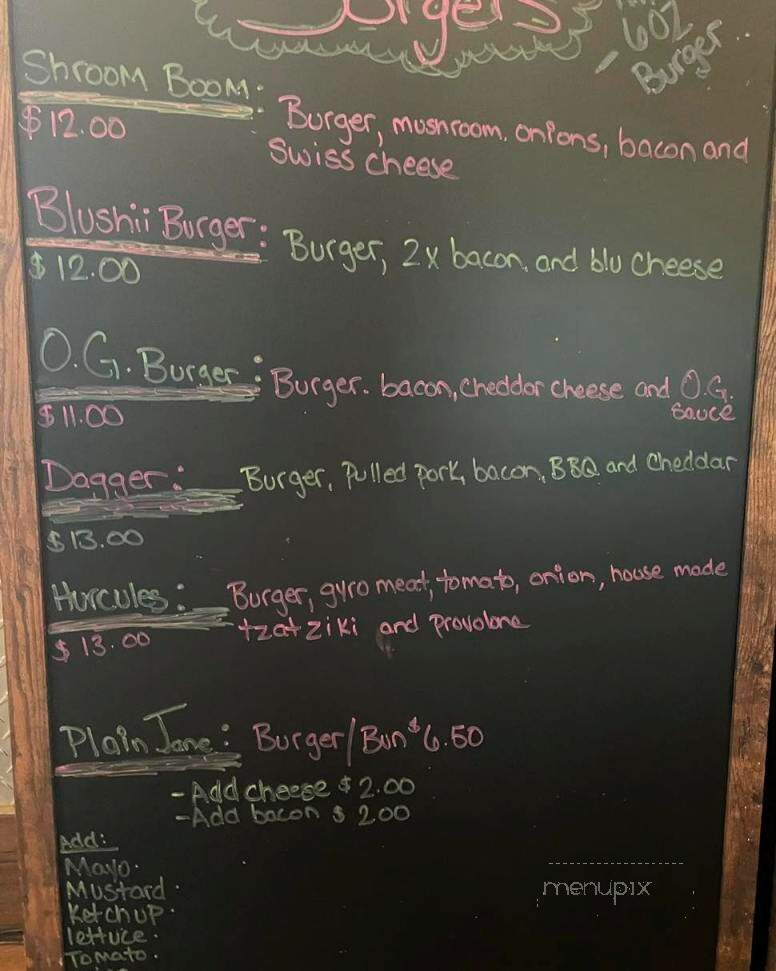 Burgers
- 6oz
Burger
Shroom Boom:
$12.00
Burger, mushroom, onions, bacon and
Swiss cheese
Blushii Burger:
$12.00
Burger, 2x bacon, and blu cheese
O.G. Burger:
$11.00
Burger. bacon, cheddar cheese and O.G.
sauce
Dagger:
$13.00
Burger, Pulled pork, bacon, BBQ and Cheddar
Hurcules:
$13.00
Burger, gyro meat, tomato, onion, house made
tzatziki and Provolone
Plain Jane: Burger/Bun $6.50
- Add cheese $2.00
- Add bacon $2.00
Add:
Mayo.
Mustard.
Ketchup.
lettuce.
Tomato.
menupix